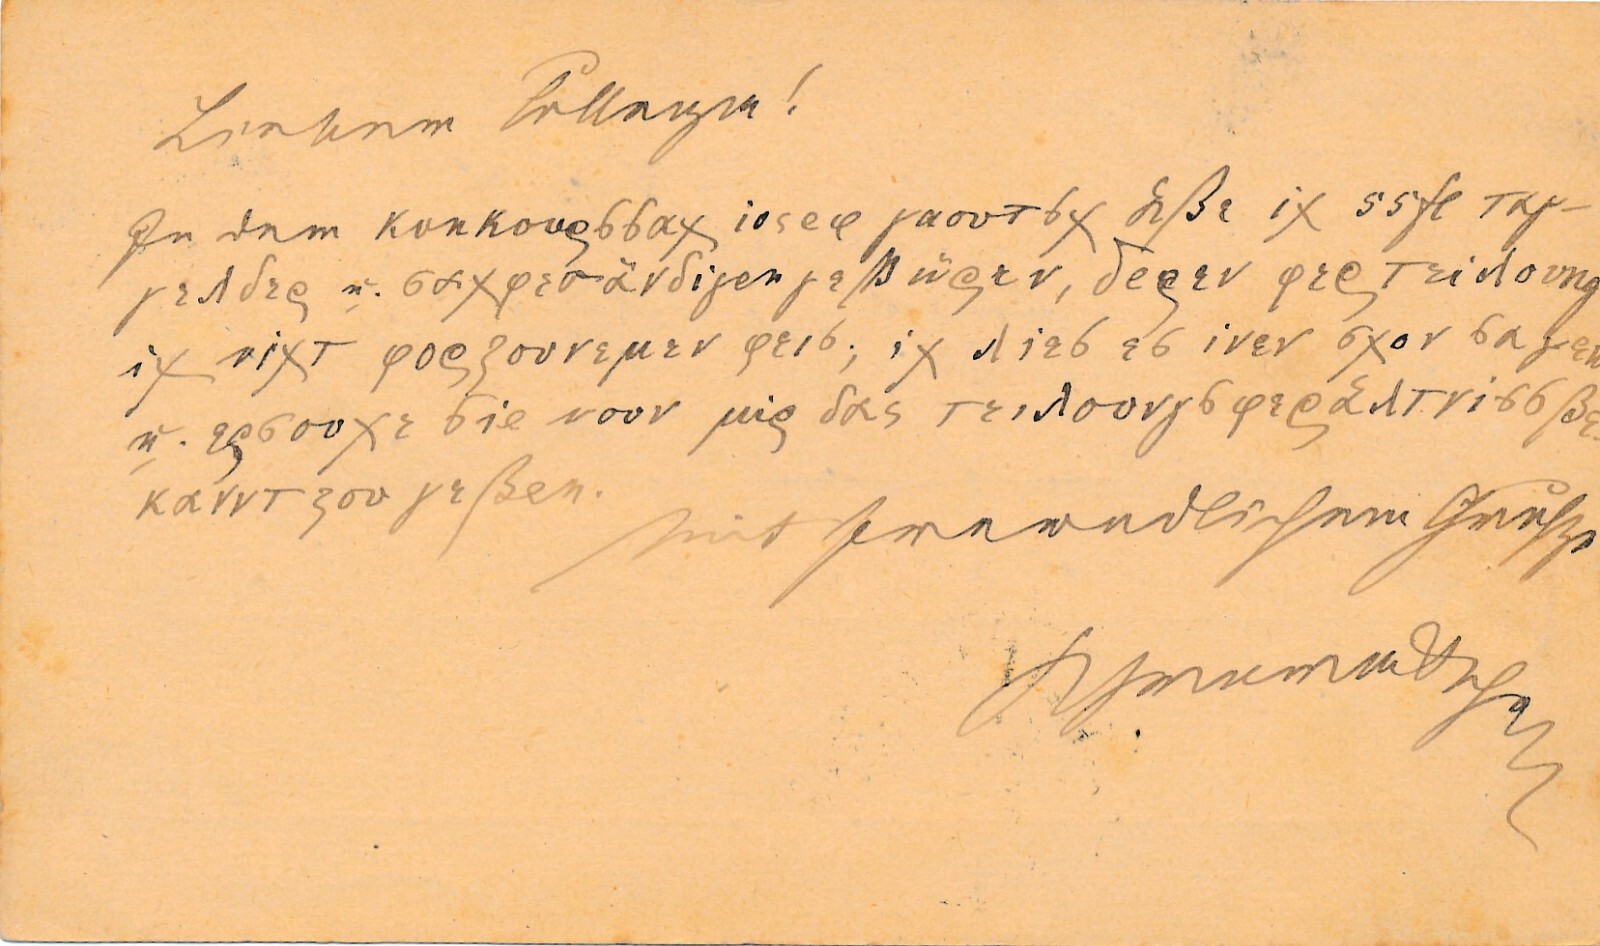 Liebster College!
In dem κονκουρσσαχ ιοσεφ γαουτσχ ἁβε ιχ 55 fl ταγ-
γελδερ u. σαχφεσάνδιγεν γεβüρεν, δερεν φερτειλουνγ
ιχ νιχτ φορζουνεμεν φεισ; ιχ λιεσ εσ ινεν σχον σαγεν
u. ερσουχε σιε νουν μιρ δας τειλουνγσφεράλτνισσ βε-
κανντ ζου γεβεν.
Mit freundlichem Gruße